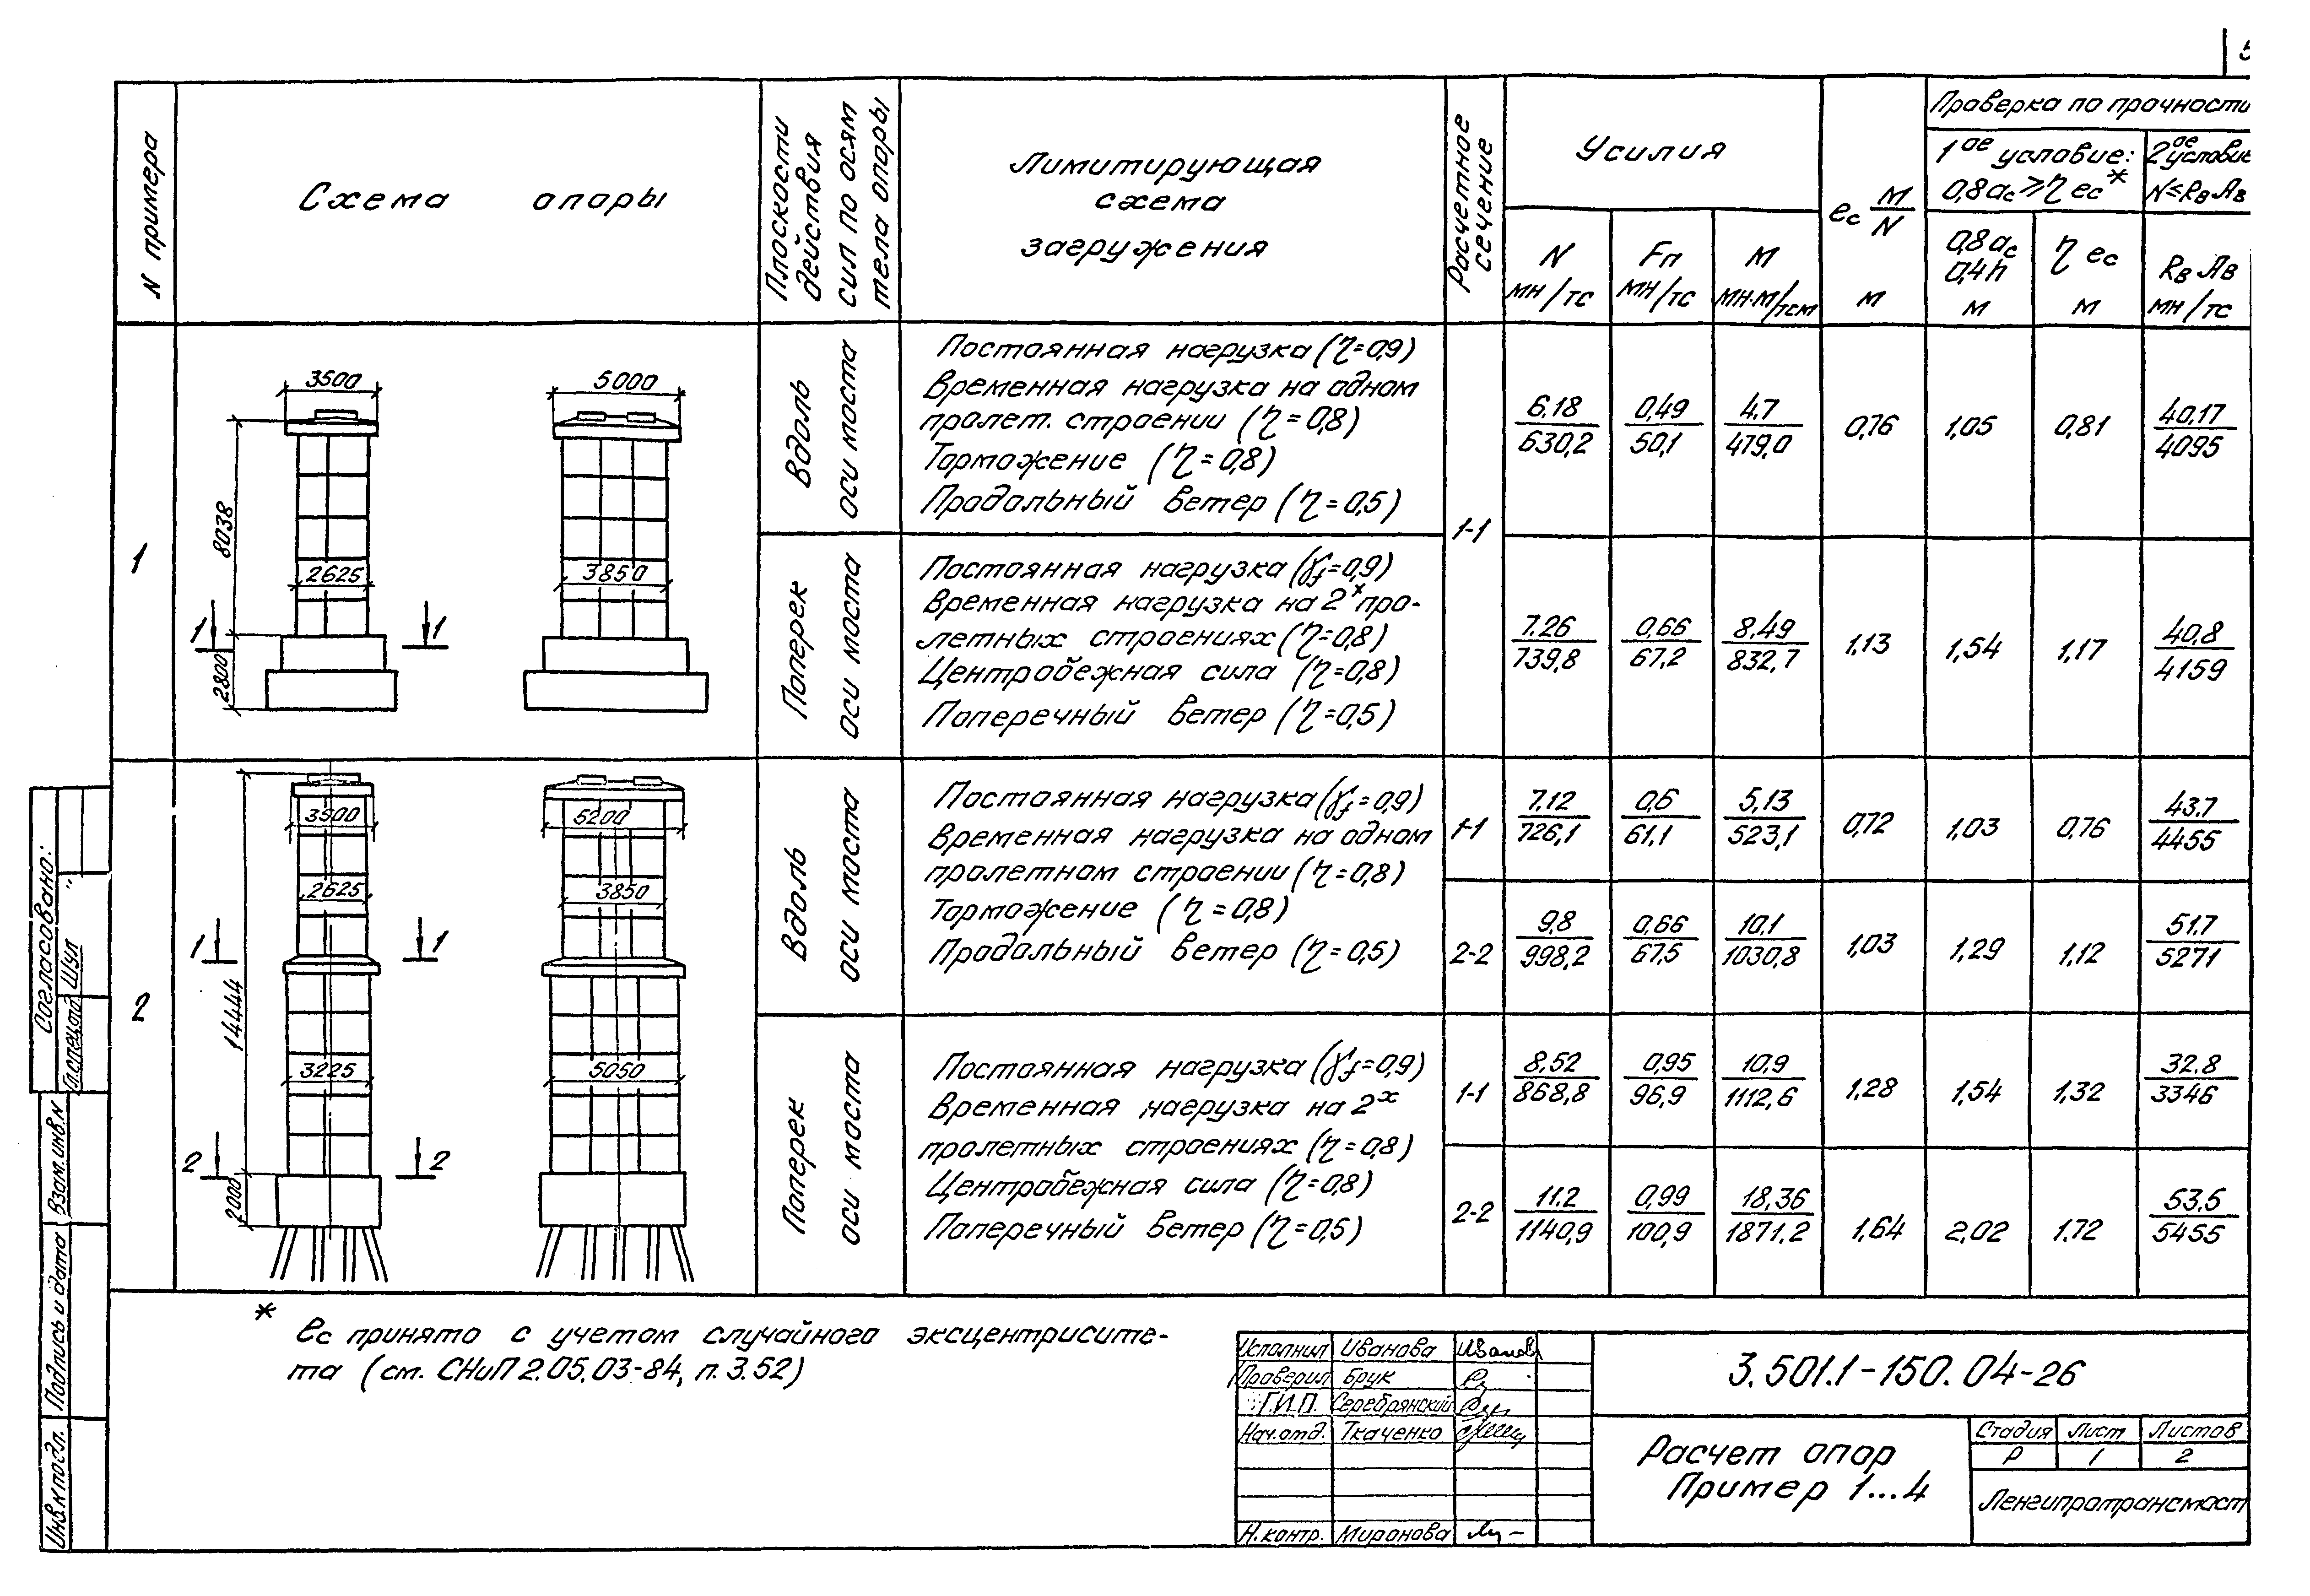 5
N примера
Схема опоры
Плоскости
действия
сил по осям
тела опоры
Лимитирующая
схема
загружения
Расчетное
сечение
Усилия
N
мн/тс
Fп
мн/тс
М
мн·м/тсм
ес М/N
м
Проверка по прочности
1ое условие:
0,8ас ⩾ η ес*
2ое условие
N≤Rв Ав
0,8ас
0,4h
м
η ес
м
Rв Ав
мн/тс
1
3500
5000
8038
2625
3850
1
1
2800
Вдоль
оси моста
Постоянная нагрузка (η=0,9)
Временная нагрузка на одном
пролет. строении (η=0,8)
Торможение (η=0,8)
Продольный ветер (η=0,5)
1-1
6.18
630,2
0,49
50,1
4.7
479,0
0,76
1,05
0,81
40.17
4095
Поперек
оси моста
Постоянная нагрузка (γf=0,9)
Временная нагрузка на 2х про-
летных строениях (η=0,8)
Центробежная сила (η=0,8)
Поперечный ветер (η=0,5)
7.26
739,8
0,66
67,2
8,49
832,7
1,13
1,54
1,17
40.8
4159
2
3500
5200
2625
3850
1
1
14444
3225
5050
2
2
2000
Вдоль
оси моста
Постоянная нагрузка (γf=0,9)
Временная нагрузка на одном
пролетном строении (η=0,8)
Торможение (η=0,8)
Продольный ветер (η=0,5)
1-1
7.12
726,1
0,6
61,1
5,13
523,1
0,72
1,03
0,76
43.7
4455
2-2
9,8
998,2
0,66
67,5
10,1
1030,8
1,03
1,29
1,12
51.7
5271
Поперек
оси моста
Постоянная нагрузка (γf=0,9)
Временная нагрузка на 2х
пролетных строениях (η=0,8)
Центробежная сила (η=0,8)
Поперечный ветер (η=0,5)
1-1
8,52
868,8
0,95
96,9
10,9
1112,6
1,28
1,54
1,32
32.8
3346
2-2
11.2
1140,9
0,99
100,9
18,36
1871.2
1,64
2,02
1.72
53,5
5455
* ес принято с учетом случайного эксцентрисите-
та (см. СНиП 2.05.03-84, п. 3.52)
Согласовано:
Гл.спецотд. Шул
Взам.инв.N
Подпись и дата
Инв.N подл.
Исполнил Иванова Иванов
Проверил Брук
Г.И.П. Серебрянский
Нач.отд. Ткаченко
Н.контр. Миронова
3.501.1-150.04-26
Расчет опор
Пример 1...4
Стадия Лист Листов
Р 1 2
Ленгипротрансмост